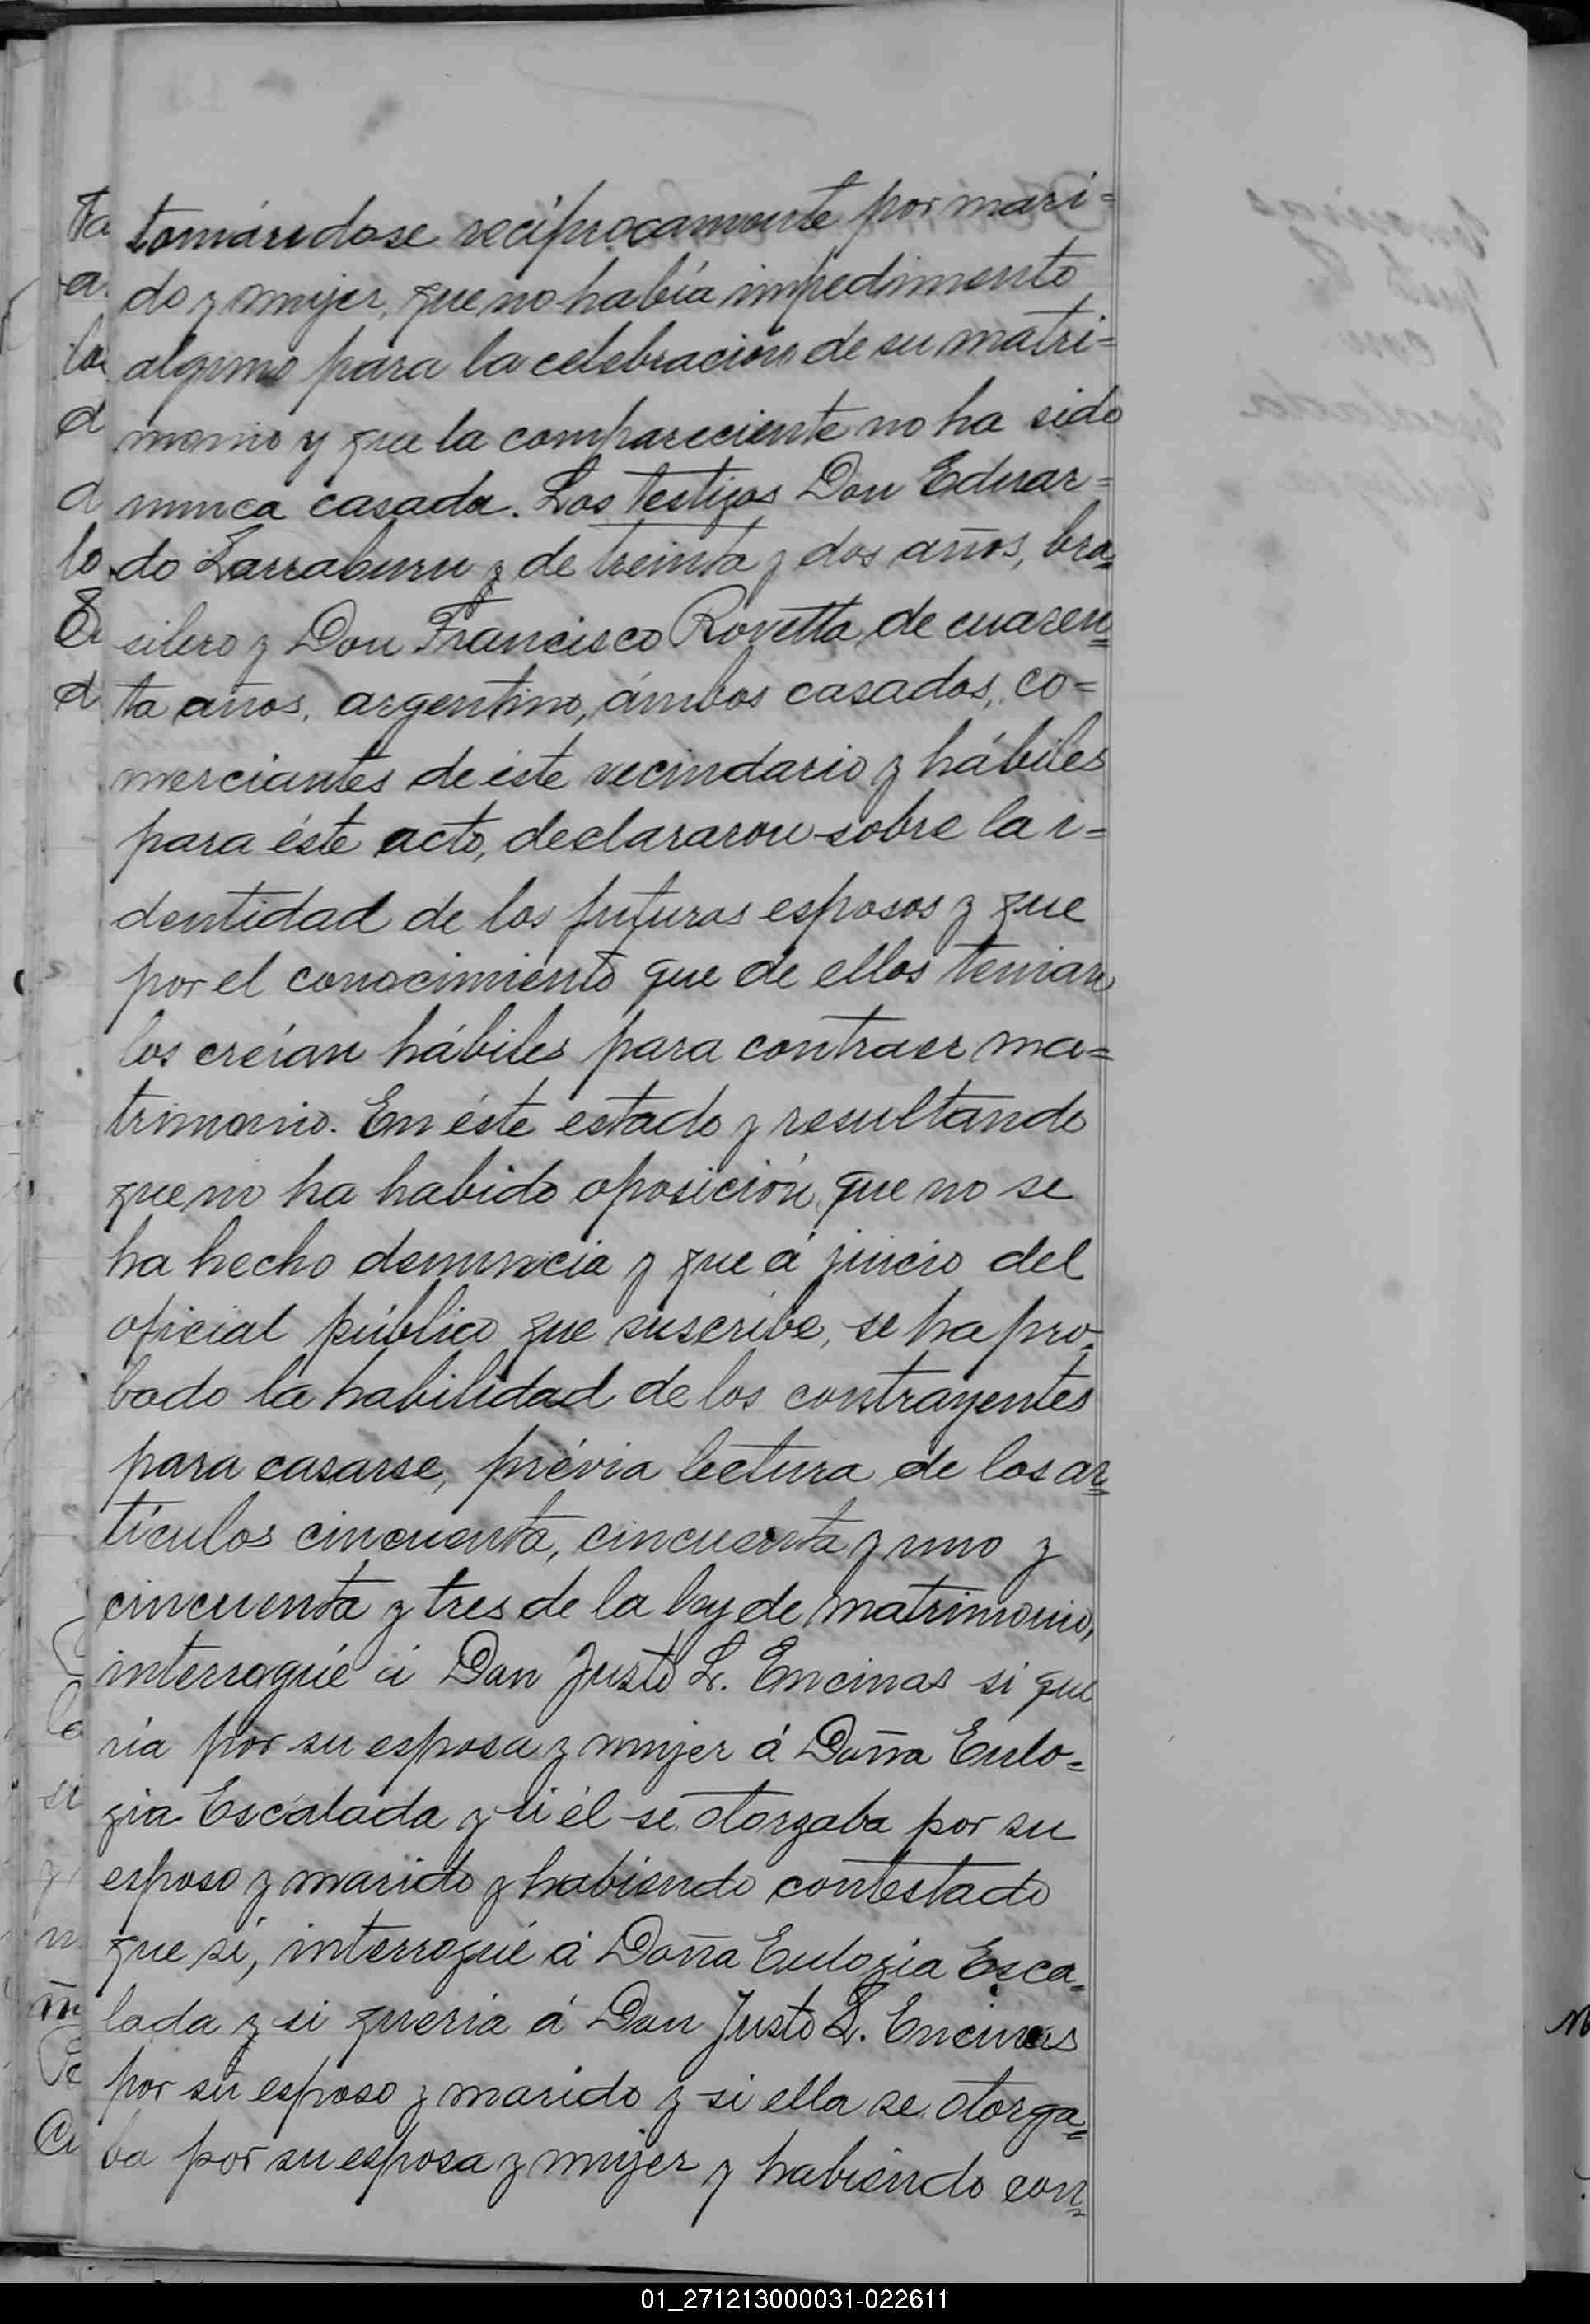 tomándose recíprocamente por mari=
do y mujer, que no había impedimento
alguno para la celebración de su matri=
monio y que la compareciente no ha sido
nunca casada. Los testigos Don Eduar=
do Larraburu y de treinta y dos años, bra=
silero y Don Francisco Rovetta de cuaren=
ta años, argentino, ámbos casados, co=
merciantes de éste vecindario y hábiles
para éste acto, declararon sobre la i=
dentidad de los futuros esposos y que
por el conocimiento que de ellos tenian
los creían hábiles para contraer ma=
trimonio. En éste estado y resultando
que no ha habido oposición, que no se
ha hecho denuncia y que á juicio del
oficial público que suscribe, se ha pro=
bado la habilidad de los contrayentes
para casarse, prévia lectura de los ar=
tículos cincuenta, cincuenta y uno y
cincuenta y tres de la ley de matrimonio,
interrogué á Don Justo L. Encinas si que
ría por su esposa y mujer á Doña Eulo=
gia Escalada y si él se otorgaba por su
esposo y marido y habiendo contestado
que sí, interrogué á Doña Eulogia Esca=
lada y si queria á Don Justo L. Encinas
por su esposo y marido y si ella se otorga=
ba por su esposa y mujer y habiendo con=
01_271213000031-022611